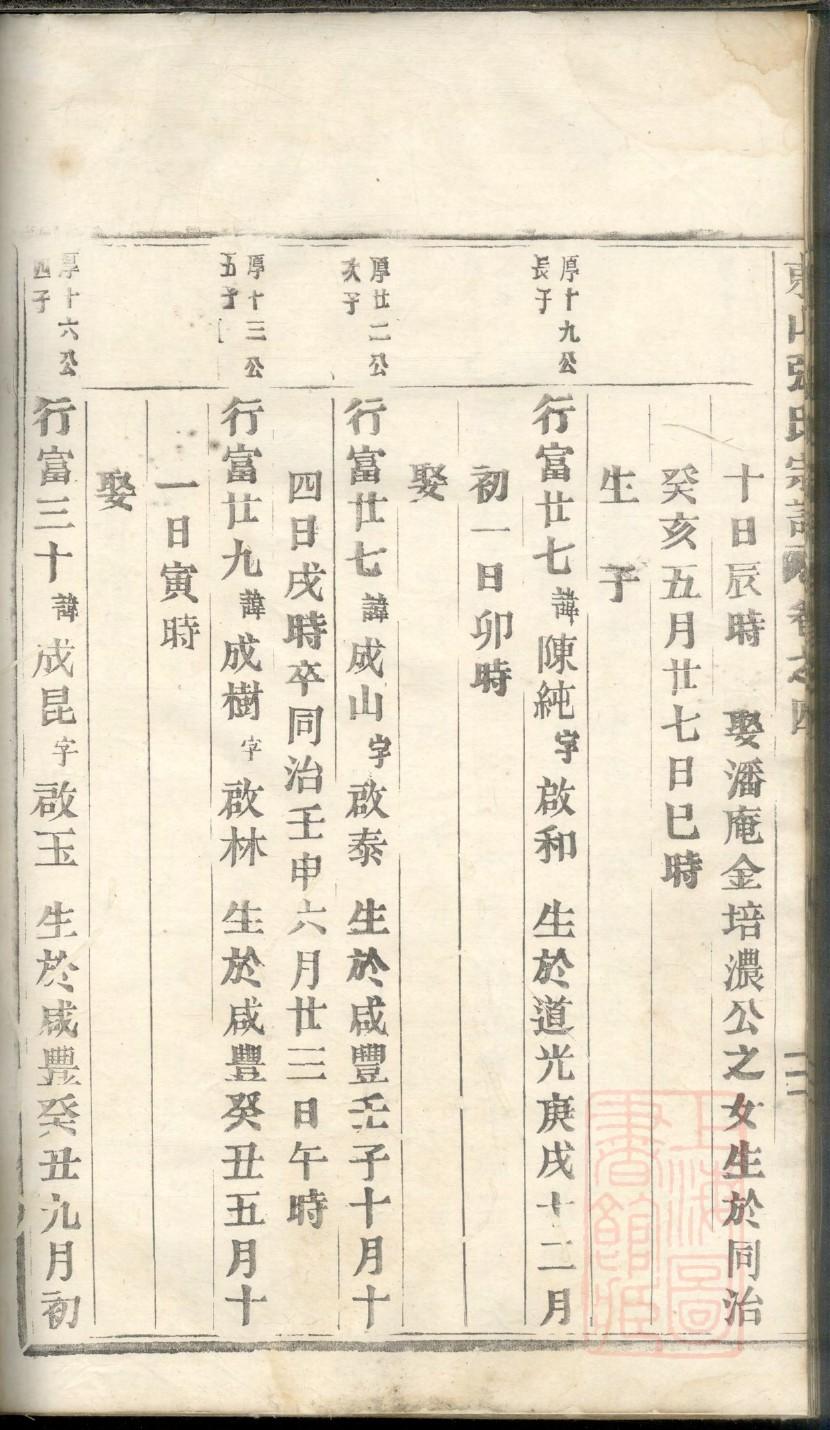 東山張氏宗譜 卷之四
十日辰時 娶潘庵金培濃公之女生於同治
癸亥五月廿七日巳時
生子
厚十九公
長子
行富廿七諱陳純字啟和 生於道光庚戌十二月
初一日卯時
娶
厚廿二公
次子
行富廿七諱成山字啟泰 生於咸豐壬子十月十
四日戌時卒同治壬申六月廿三日午時
厚十三公
五子
行富廿九諱成樹字啟林 生於咸豐癸丑五月十
一日寅時
娶
厚十六公
四子
行富三十諱成昆字啟玉 生於咸豐癸丑九月初
上海圖
書館藏